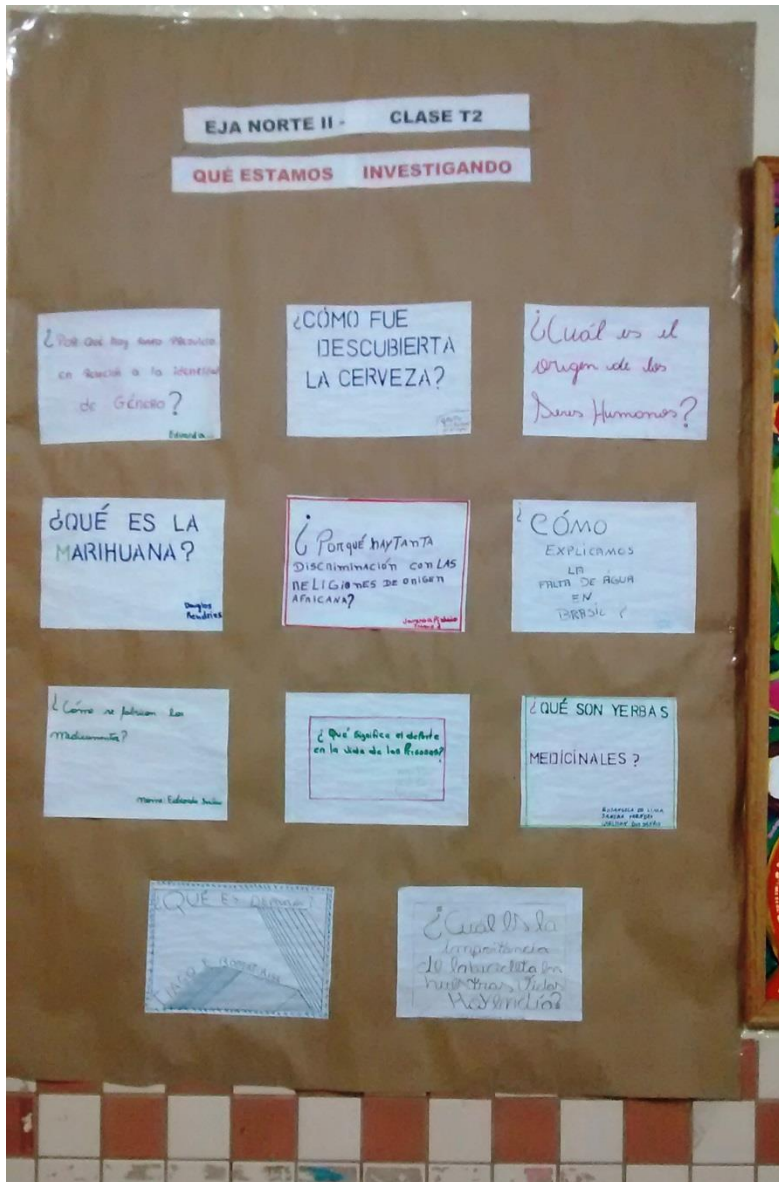 EJA NORTE II - CLASE T2
QUÉ ESTAMOS INVESTIGANDO
¿Por qué hay
en a la identidad
de Género?
Eduarda
¿CÓMO FUE
DESCUBIERTA
LA CERVEZA?
¿Cuál es el
origen de los
Seres Humanos?
¿QUÉ ES LA
MARIHUANA?
Douglas
Hendries
¿PORQUÉ HAY TANTA
DISCRIMINACIÓN CON LAS
RELIGIONES DE ORIGEN
AFRICANA?
¿CÓMO
EXPLICAMOS
LA
FALTA DE ÁGUA
EN
BRASIL?
¿Cómo se fabrican los
medicamentos?
¿Qué significa el deporte
en la vida de las Personas?
¿QUÉ SON YERBAS
MEDICINALES?
¿QUÉ ES
¿Cuál es la
importancia
de la bicicleta en
nuestras vidas
Hoy en día?